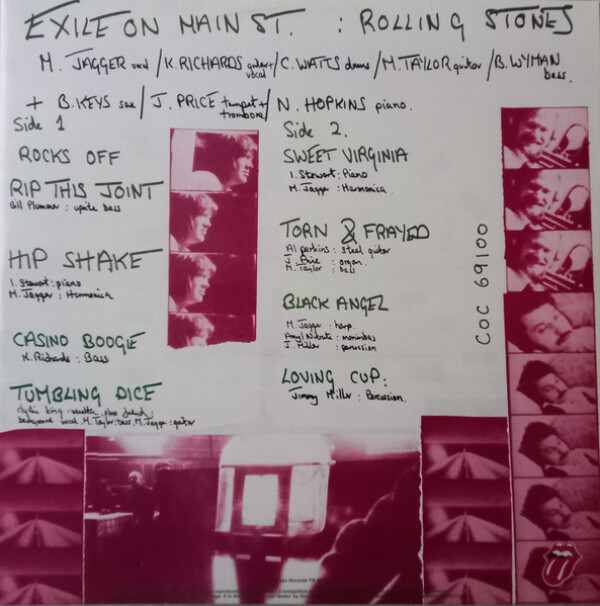 EXILE ON MAIN ST. : ROLLING STONES
M. JAGGER vocal / K. RICHARDS guitar + vocal / C. WATTS drums / M. TAYLOR guitar / B. WYMAN bass.
+ B. KEYS sax / J. PRICE trumpet + trombone / N. HOPKINS piano.
Side 1
ROCKS OFF
RIP THIS JOINT
Bill Plummer : uprite bass
HIP SHAKE
I. Stewart : piano
M. Jagger : Harmonica
CASINO BOOGIE
K. Richards : Bass
TUMBLING DICE
background vocal. M. Taylor: bass, M. Jagger: guitar
Side 2.
SWEET VIRGINIA
I. Stewart : Piano
M. Jagger : Harmonica.
TORN & FRAYED
Al perkins : steel guitar
J. Price : organ.
M. Taylor : bass
BLACK ANGEL
M. Jagger : harp.
: marimbas
J. Miller : percussion
LOVING CUP:
Jimmy Miller : Percussion.
COC 69100